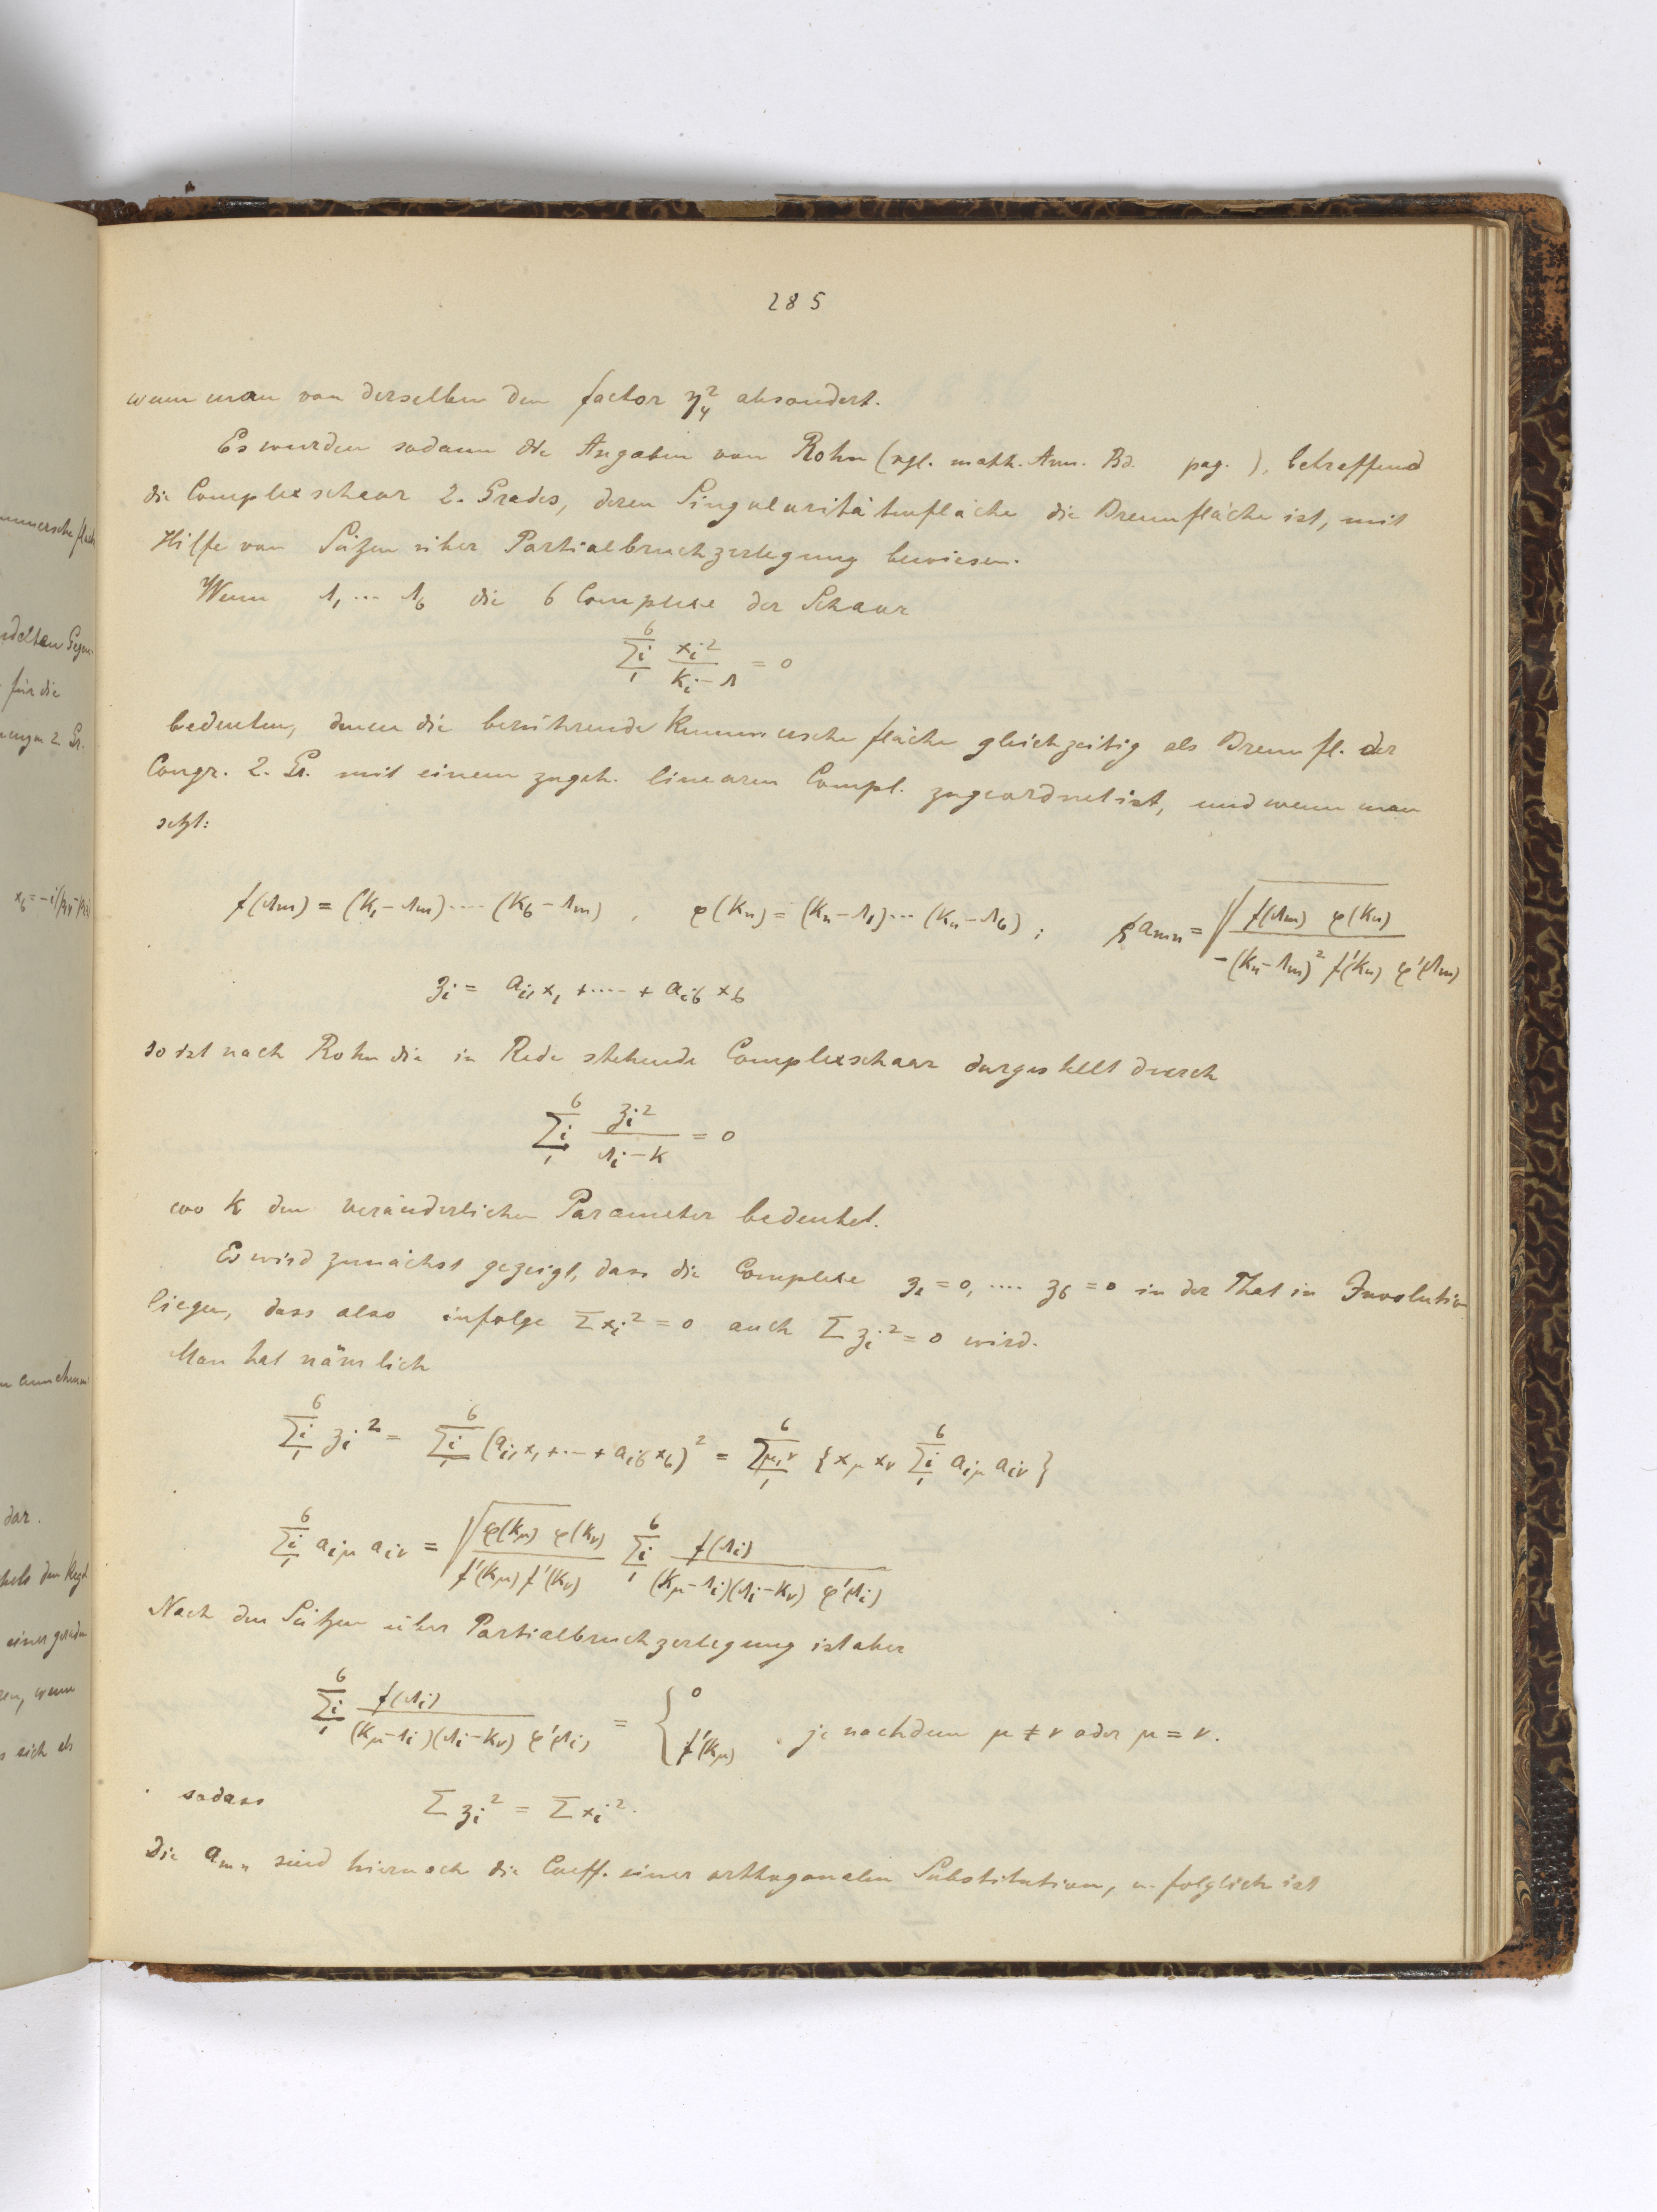 285
wenn man von derselben den factor η₄² absondert.
Es wurden sodann die Angaben von Rohn (vgl. math. Ann. Bd. pag. ), betreffend
die Complexschaar 2. Grades, deren Singularitätenfläche die Brennfläche ist, mit
Hilfe von Sätzen über Partialbruchzerlegung bewiesen.
Wenn λ₁ ... λ₆ die 6 Complexe der Schaar
∑ᵢ₁⁶ xᵢ²/(kᵢ − λ) = 0
bedeuten, denen die berührende Kummersche fläche gleichzeitig als Brennfl. der
Congr. 2. Gr. mit einem zugeh. linearen Compl. zugeordnet ist, und wenn man
setzt:
f(λm) = (k₁ − λm) .... (k₆ − λm) , φ(kn) = (kn − λ₁) ... (kn − λ₆) ; ϱ amn = √( f(λm) φ(kn) / −(kn − λm)² f'(kn) φ'(λm) )
zᵢ = aᵢ₁x₁ + .... + aᵢ₆x₆
so ist nach Rohn die in Rede stehende Complexschaar dargestellt durch
∑ᵢ₁⁶ zᵢ²/(λᵢ − k) = 0
wo k den veränderlichen Parameter bedeutet.
Es wird zunächst gezeigt, dass die Complexe z₁ = 0, .... z₆ = 0 in der That in Involution
liegen, dass also infolge ∑xᵢ² = 0 auch ∑zᵢ² = 0 wird.
Man hat nämlich
∑ᵢ₁⁶ zᵢ² = ∑ᵢ₁⁶ (aᵢ₁x₁ + ... + aᵢ₆x₆)² = ∑μ,ν₁⁶ {xμ xν ∑ᵢ₁⁶ aᵢμ aᵢν}
∑ᵢ₁⁶ aᵢμ aᵢν = √( φ(kμ) φ(kν) / f'(kμ) f'(kν) ) ∑ᵢ₁⁶ f(λᵢ) / (kμ − λᵢ)(λᵢ − kν) φ'(λᵢ)
Nach den Sätzen über Partialbruchzerlegung ist aber
∑ᵢ₁⁶ f(λᵢ) / (kμ − λᵢ)(λᵢ − kν) φ'(λᵢ) = { 0 f'(kμ) , je nachdem μ ≠ ν oder μ = ν.
sodass ∑zᵢ² = ∑xᵢ².
Die amn sind hiernach die Coeff. einer orthogonalen Substitution, u. folglich ist